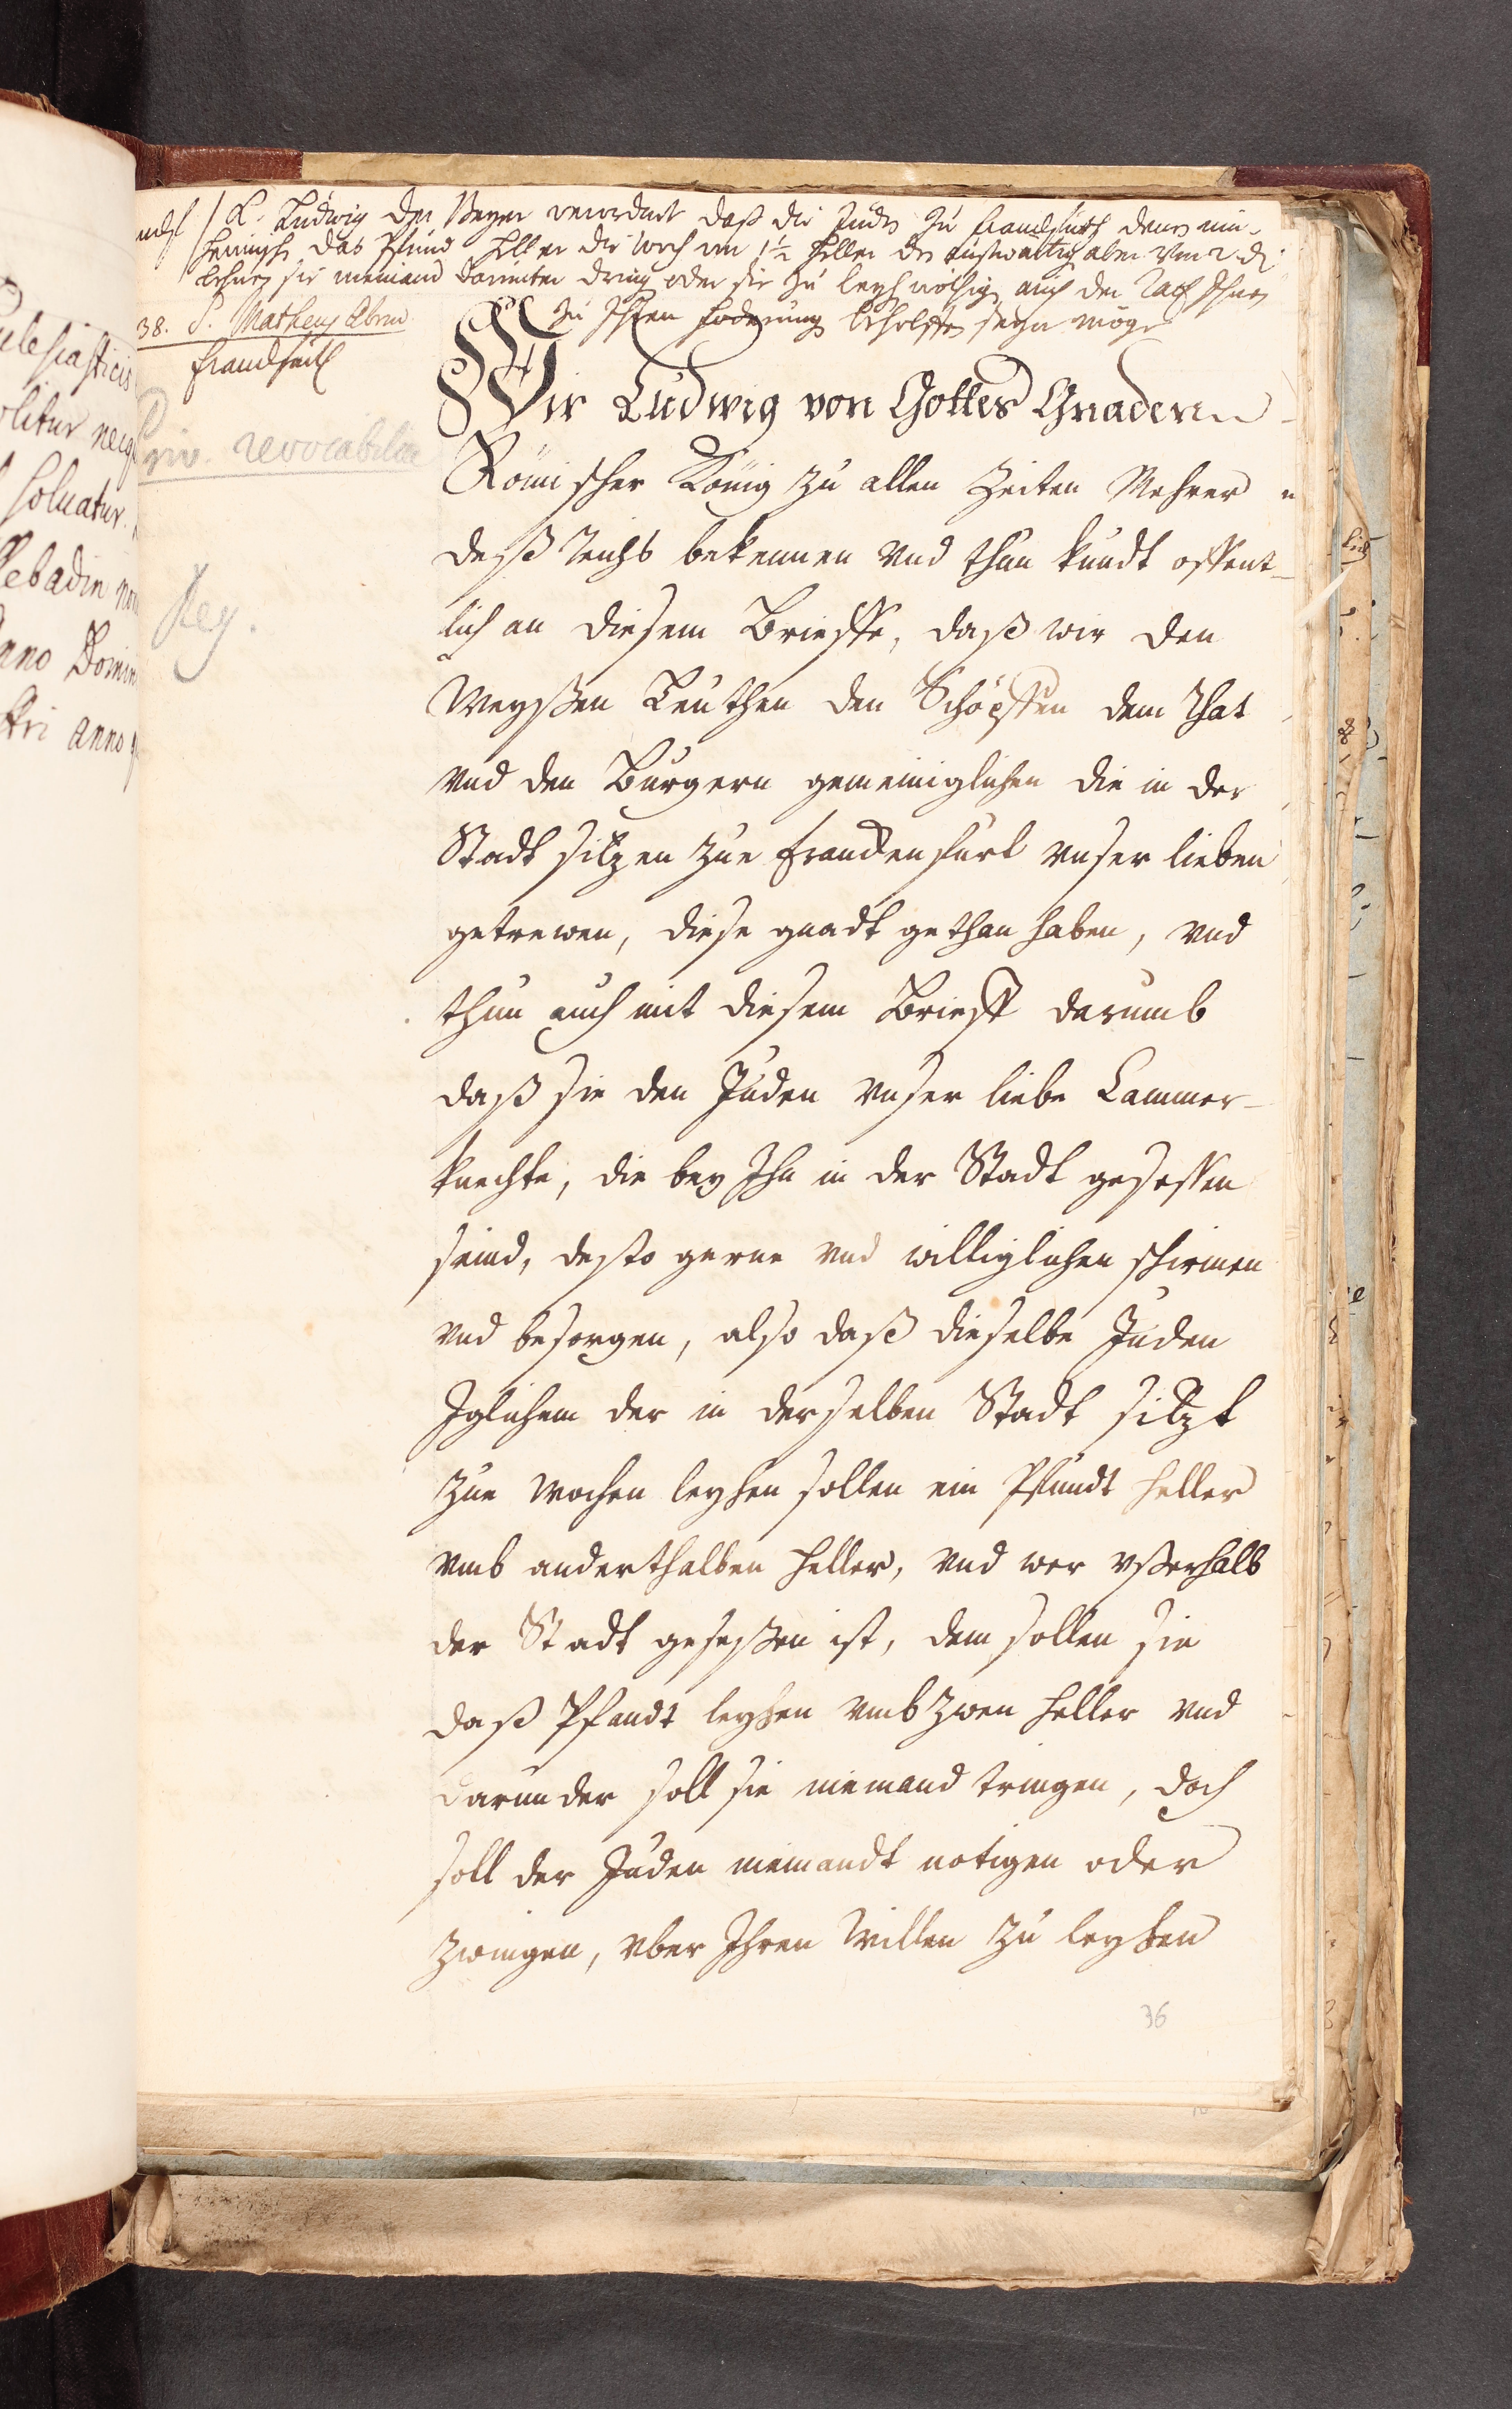 K. Ludwig der Beyer verordnet daß die Juden zu Franckfurth denen ein-
heimisch. das Pfund Heller die Woch um 1½ Heller den auswärtig aber um 2 dr.
lehnen sie niemand darunter dring oder sie zu leyh nöthige, auch der Rath Ihnen
zu Ihren forderung beholffen seyn möge
38. S. Matheus Abend
Franckfurt
Priv. revocabile
Reg.
Wir Ludwig von Gottes Gnaden
Römischer König zu allen Zeiten Mehrer
deß Reichs bekennen vnd thun kundt offent-
lich an diesem Brieffe, daß wir den
Weyßen Leuthen den Schöpffen dem Rhat
vnd den Burgern gemeiniglichen die in der
Stadt sitzen zue Franckenfurt vnser lieben
getrewen, diese gnadt gethan haben, vnd
thun auch mit diesem Brieff darumb
daß sie den Juden vnser liebe Cammer-
knechte, die bey Ihn in der Stadt gesessen
seind, desto gerne vnd williglichen schirmen
vnd besorgen, also daß dieselbe Juden
Iglichem der in derselben Stadt sitzt
zue Wochen leyhen sollen ein Pfundt heller
vmb anderthalben heller, vnd wer vßerhalb
der Stadt geseßen ist, dem sollen sie
daß Pfandt leyhen vmb zwen heller vnd
darunder soll sie niemand tringen, doch
soll der Juden niemandt notigen oder
zwingen, vber Ihren Willen zu leyhen
36
ecclesiasticis
solitur neq
soluatur.
Anno Domin
stri anno